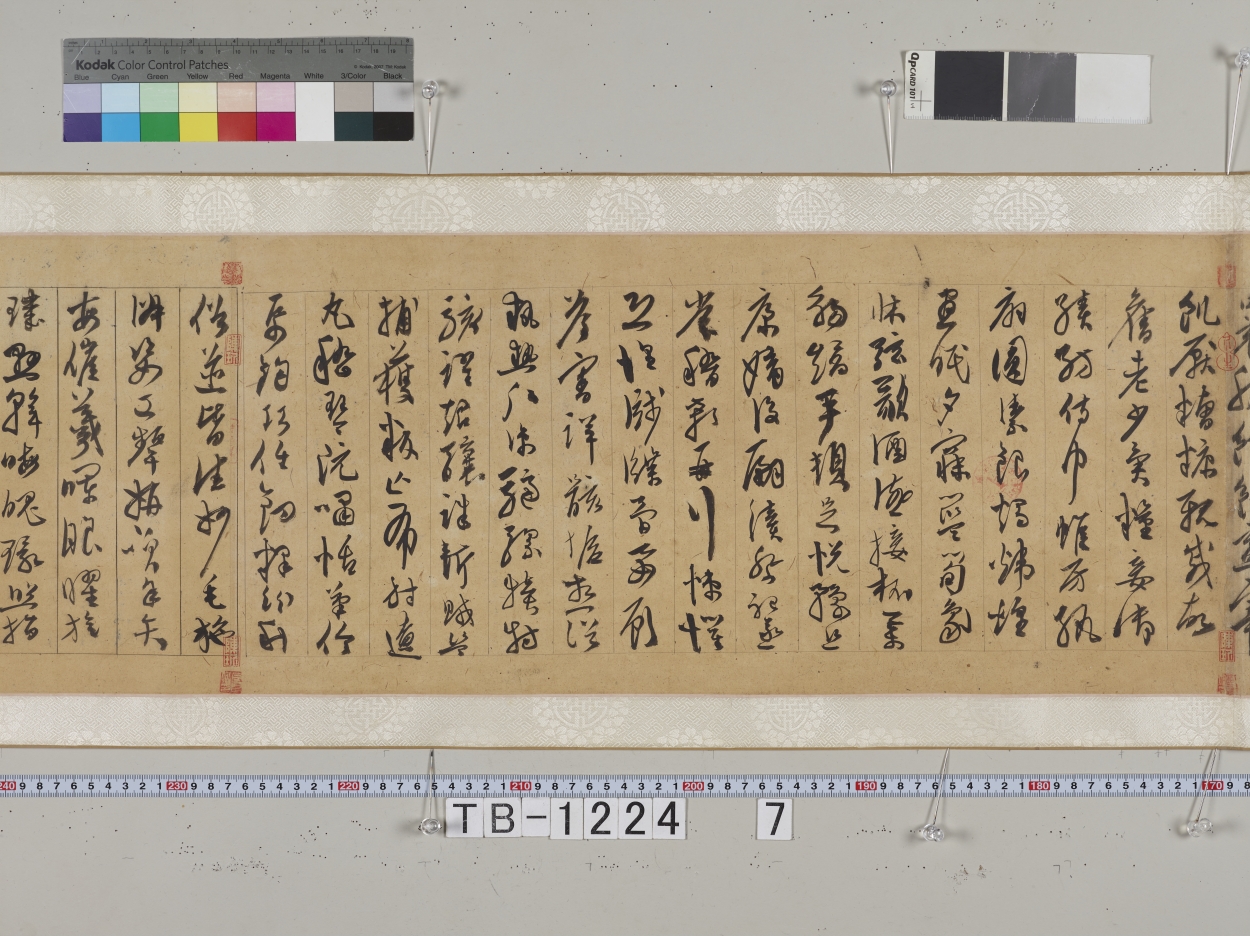 Kodak Color Control Patches
Blue Cyan Green Yellow Red Magenta White 3/Color Black
QPCARD 101
飢厭糟糠親戚故
舊老少異糧妾御
績紡侍巾帷房紈
扇圓潔銀燭煒煌
晝眠夕寐藍筍象
床弦歌酒讌接杯舉
觴矯手頓足悅豫且
康嫡後嗣續祭祀蒸
嘗稽顙再拜悚懼
恐惶牋牒簡要顧
答審詳骸垢想浴
執熱願涼驢騾犢特
駭躍超驤誅斬賊盜
捕獲叛亡布射遼
丸嵇琴阮嘯恬筆倫
紙鈞巧任釣釋紛利
俗並皆佳妙毛施
淑姿工顰妍笑年矢
每催羲暉朗曜旋
璣懸斡晦魄環照指
TB-1224 7